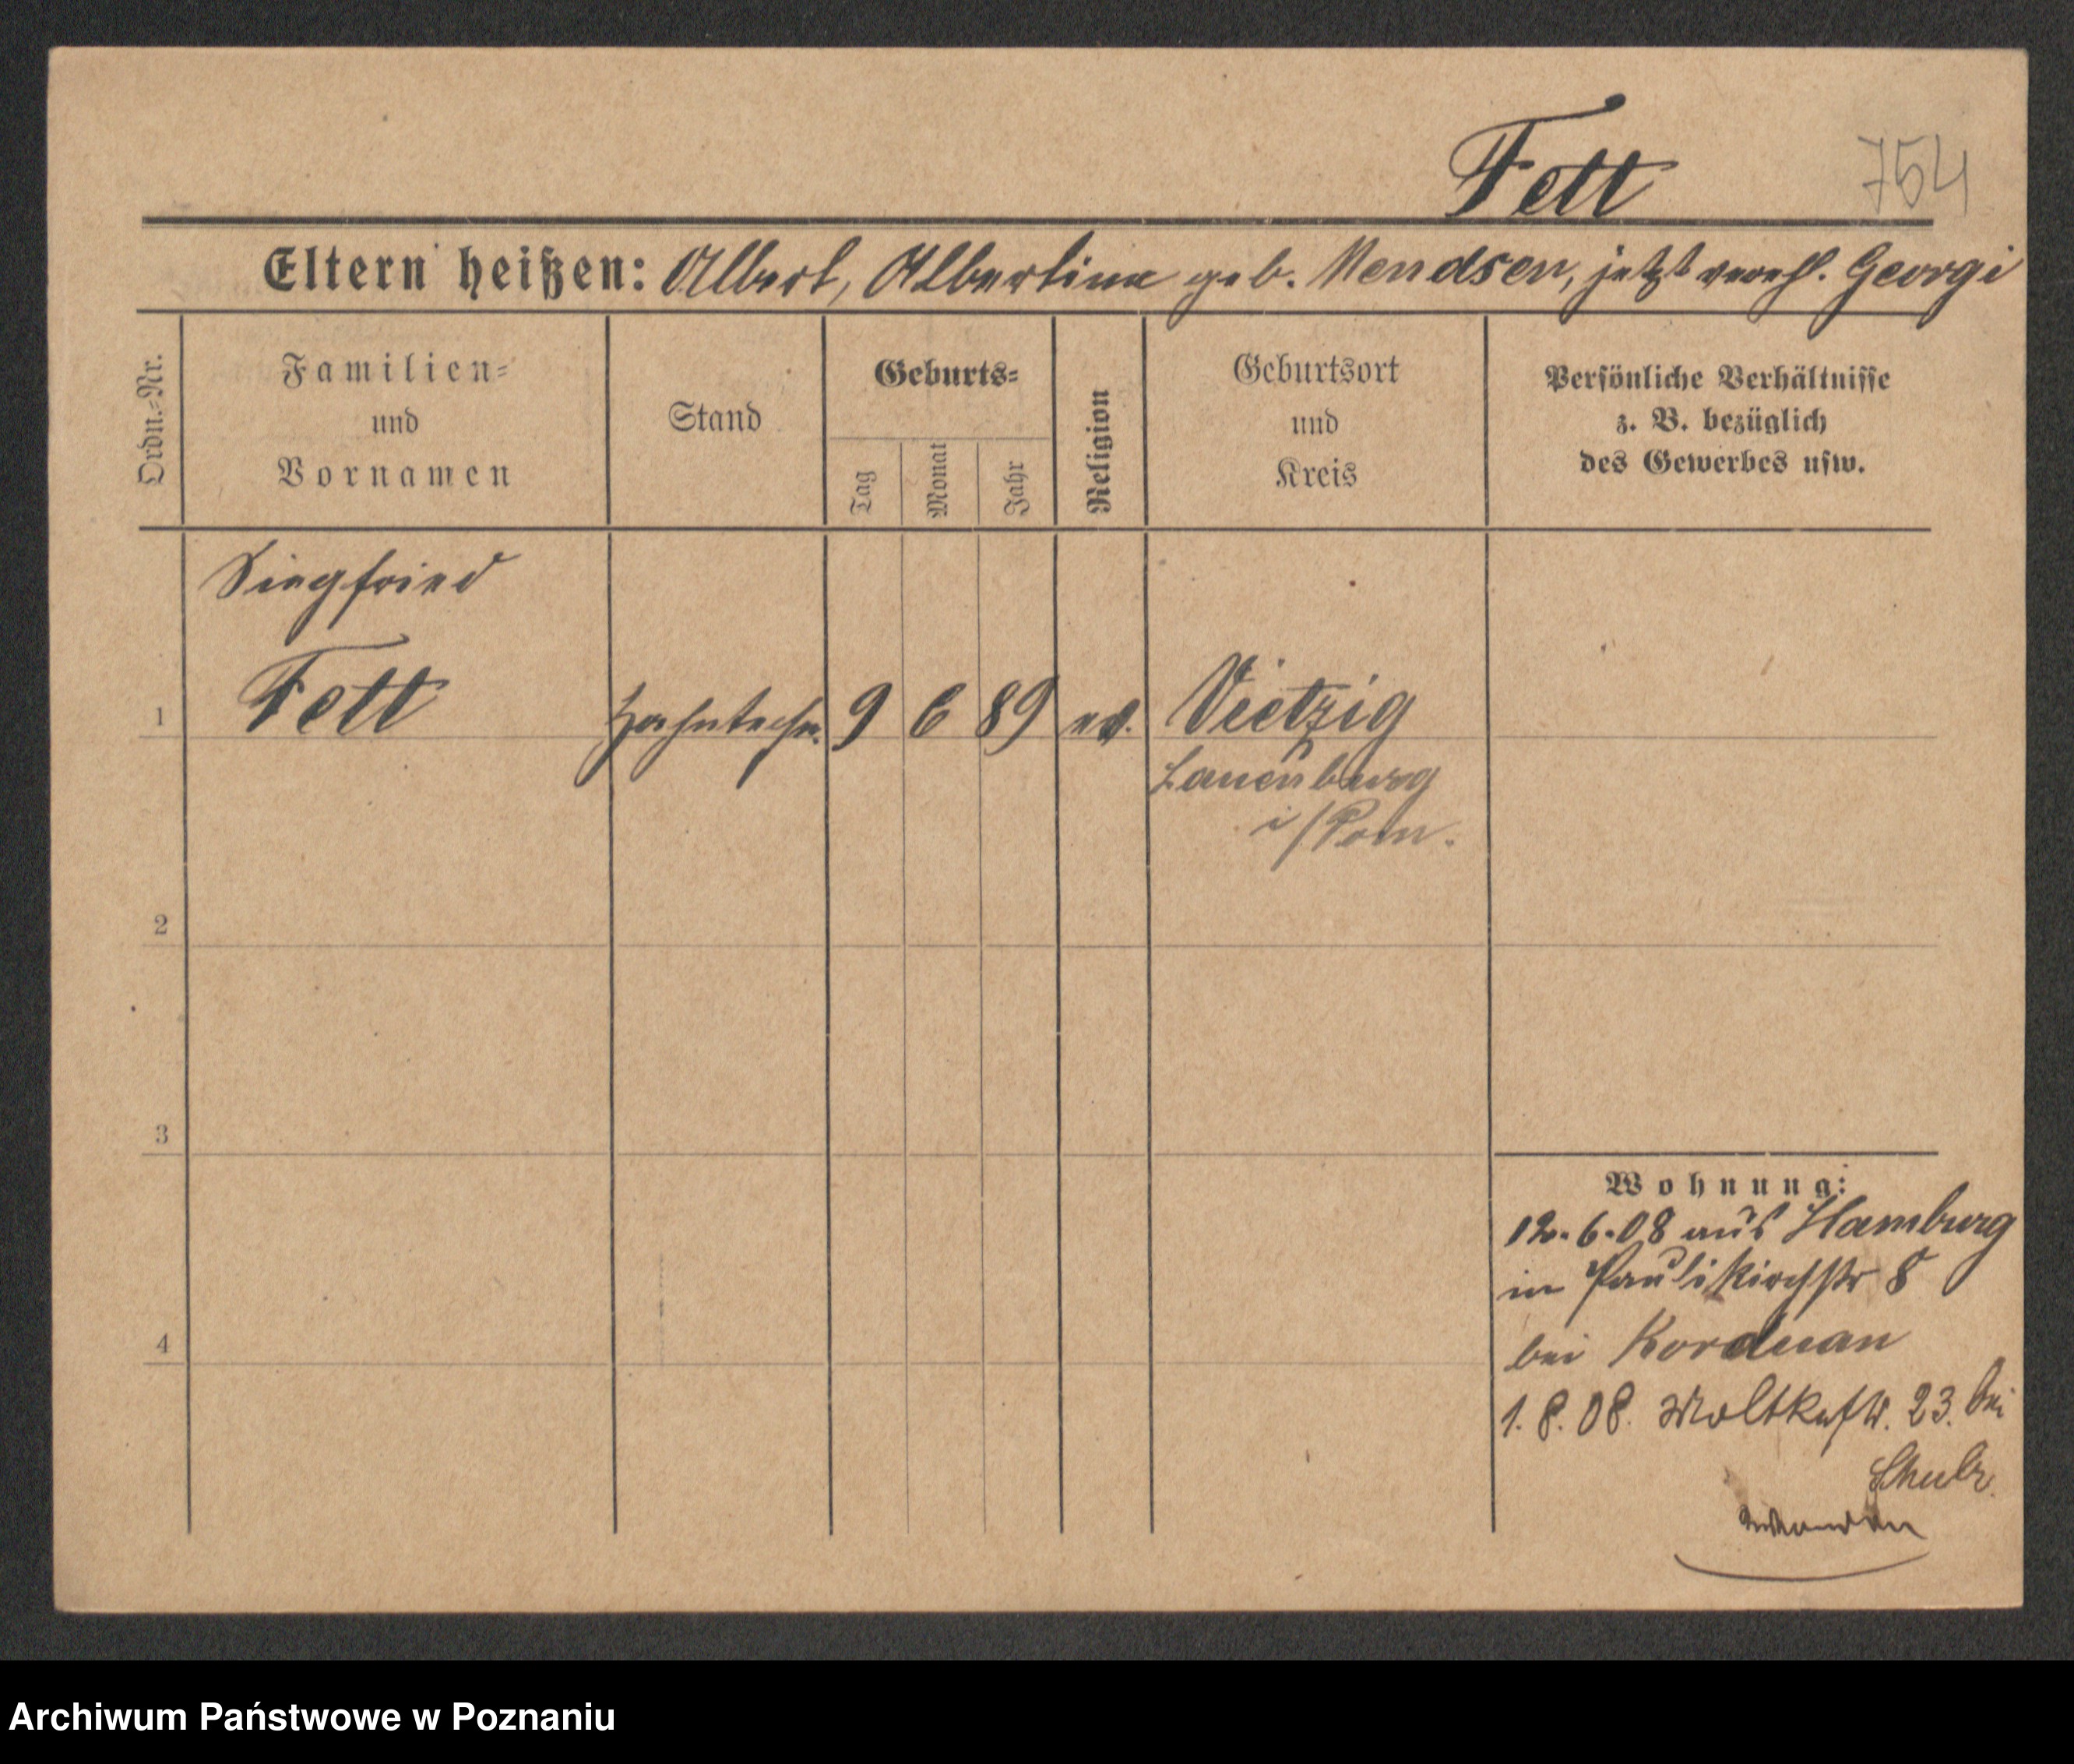 Fett 754
Eltern heißen: Albert, Albertine geb. Mendsen, jetzt vereh. Georgi
Ordn.-Nr.
Familien-
und
Vornamen
Stand
Geburts-
Tag
Monat
Jahr
Religion
Geburtsort
und
Kreis
Persönliche Verhältnisse
z. B. bezüglich
des Gewerbes usw.
Siegfried
1 Fett Zahntechn. 9 6 89 ev. Vietzig
Lauenburg
i/Pom.
2
3
4
Wohnung:
12.6.08 aus Hamburg
in Paulikirchstr 8
bei Korduan
1.8.08. Moltkestr. 23. bei
Schulz.
Archiwum Państwowe w Poznaniu